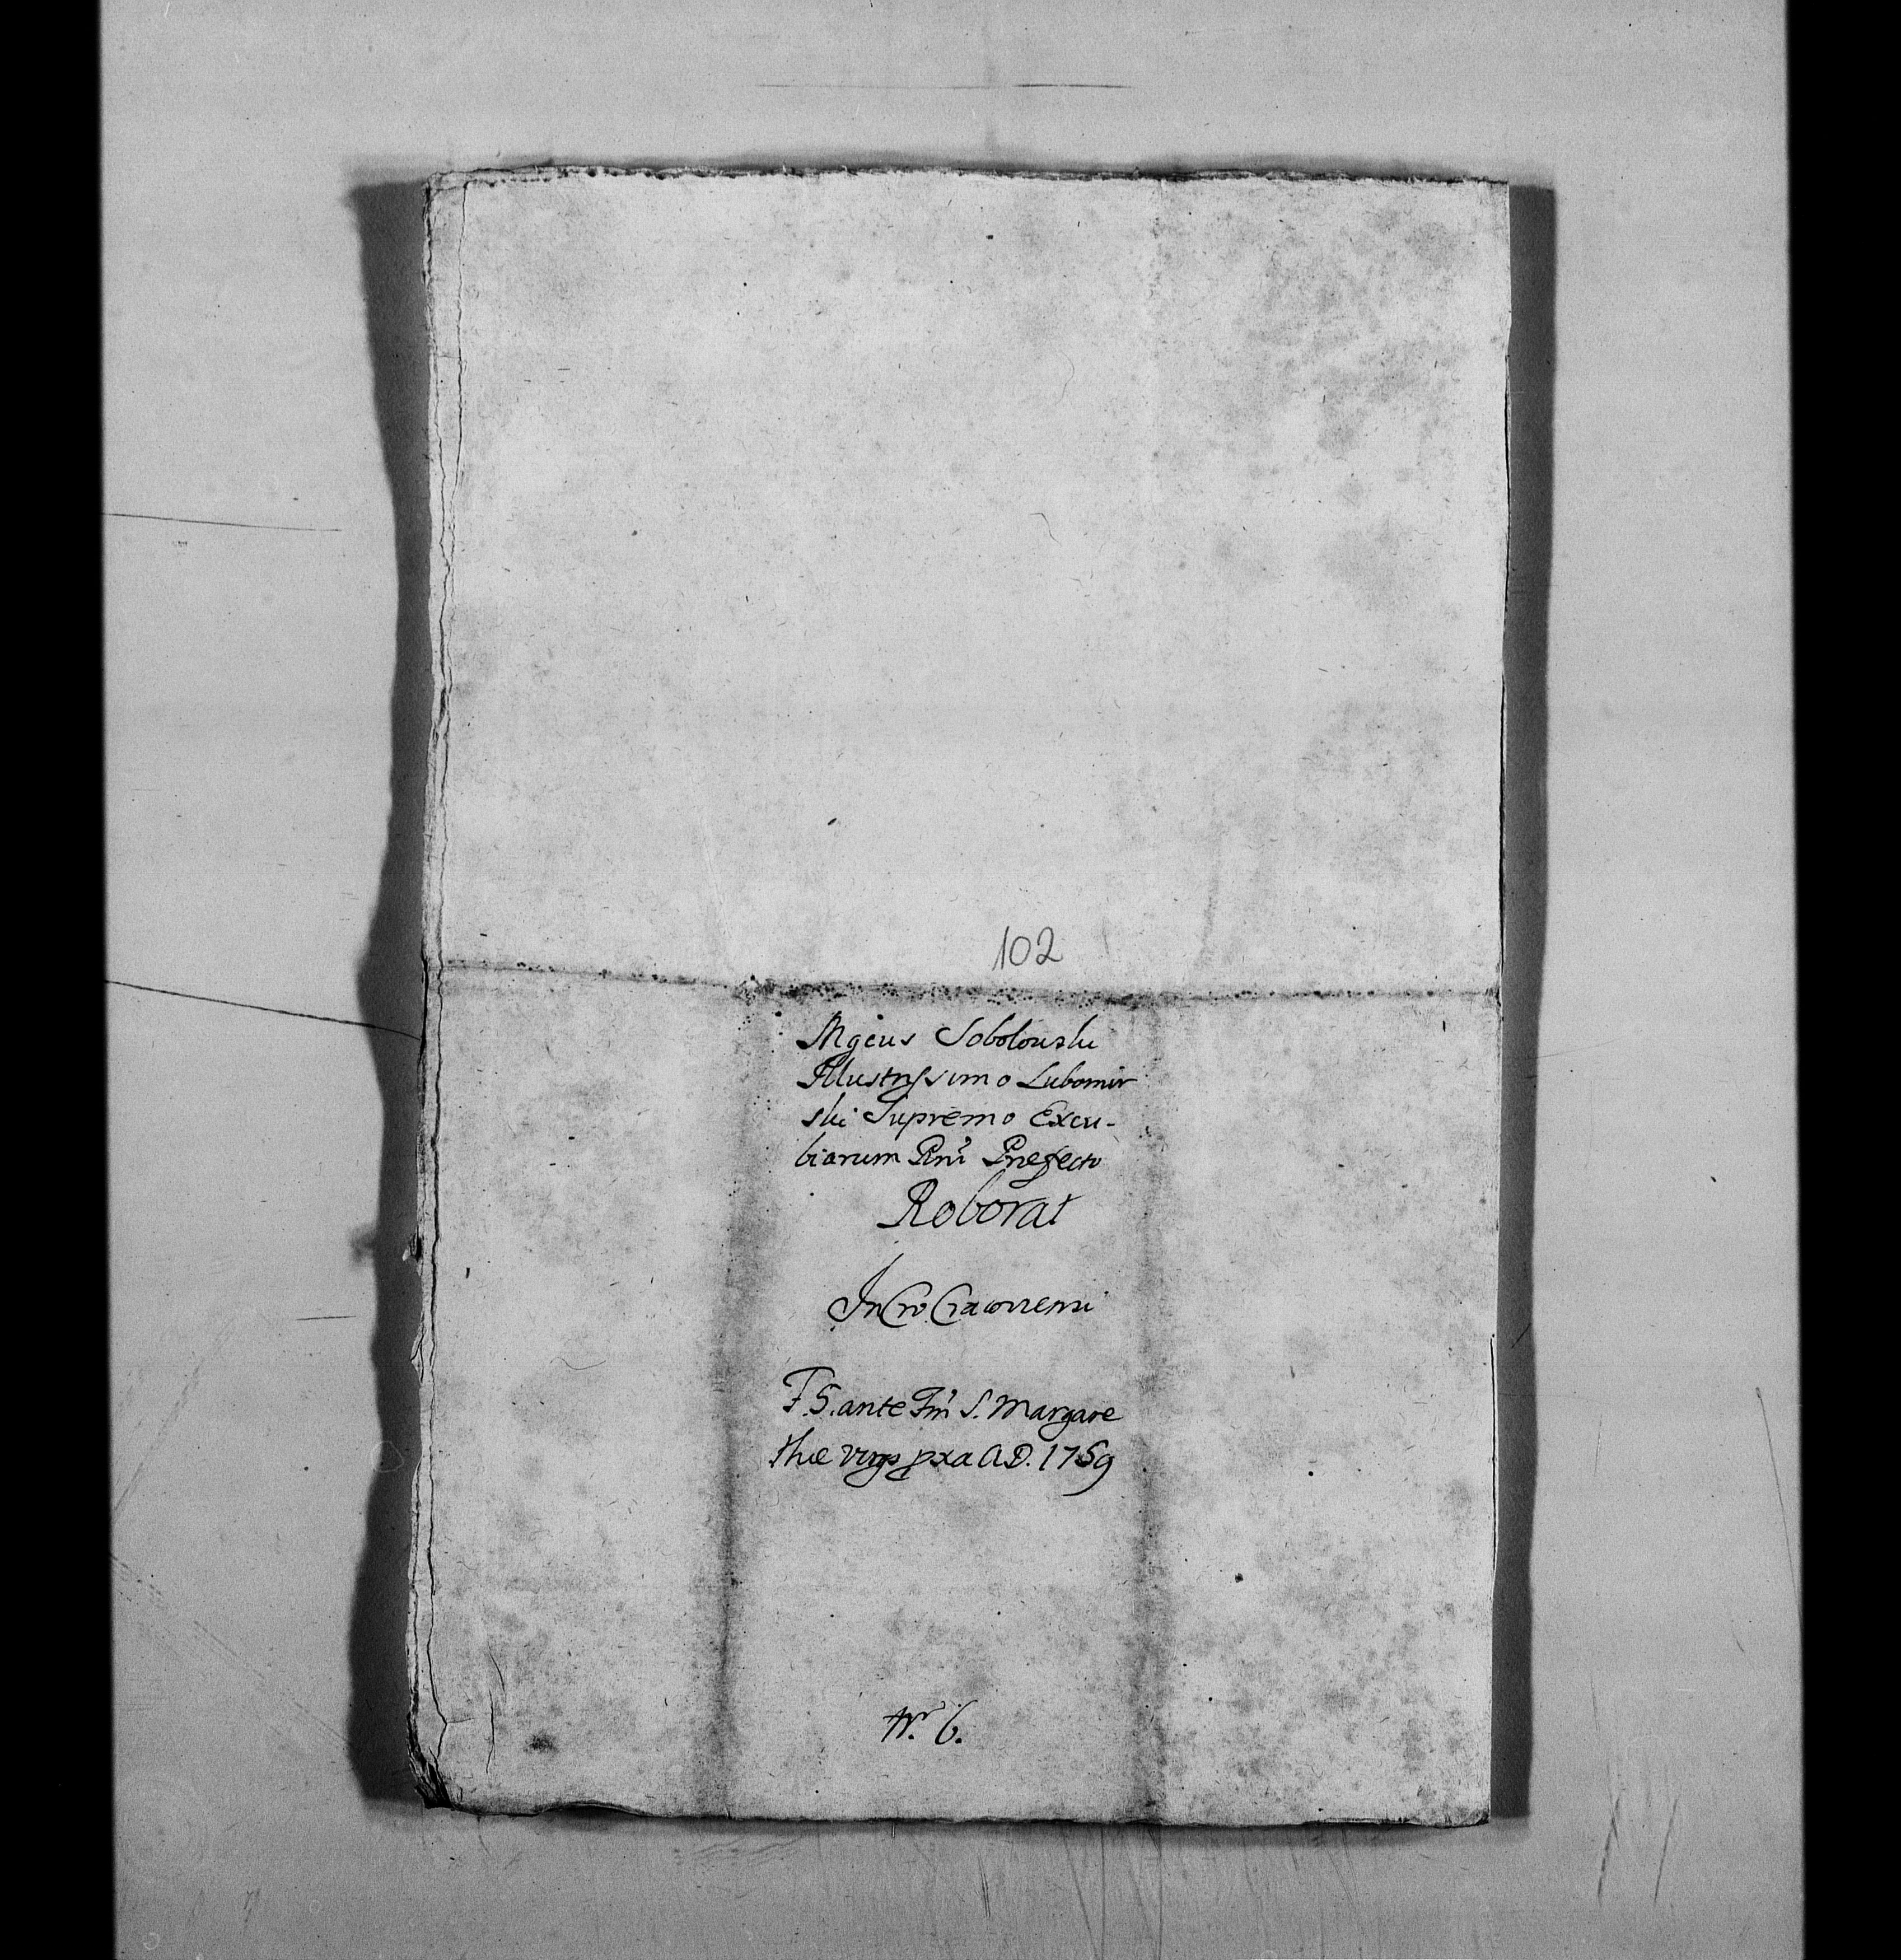 102
Mgcus Sobolouski
Illustrissimo Lubomir
ski Supremo Excu-
biarum Rni Praefecto
Roborat
In Cro Cracoviensi
F. 5. ante Fm S. Margare
thae Virgs pxa A.D. 1759
Nr. 6.